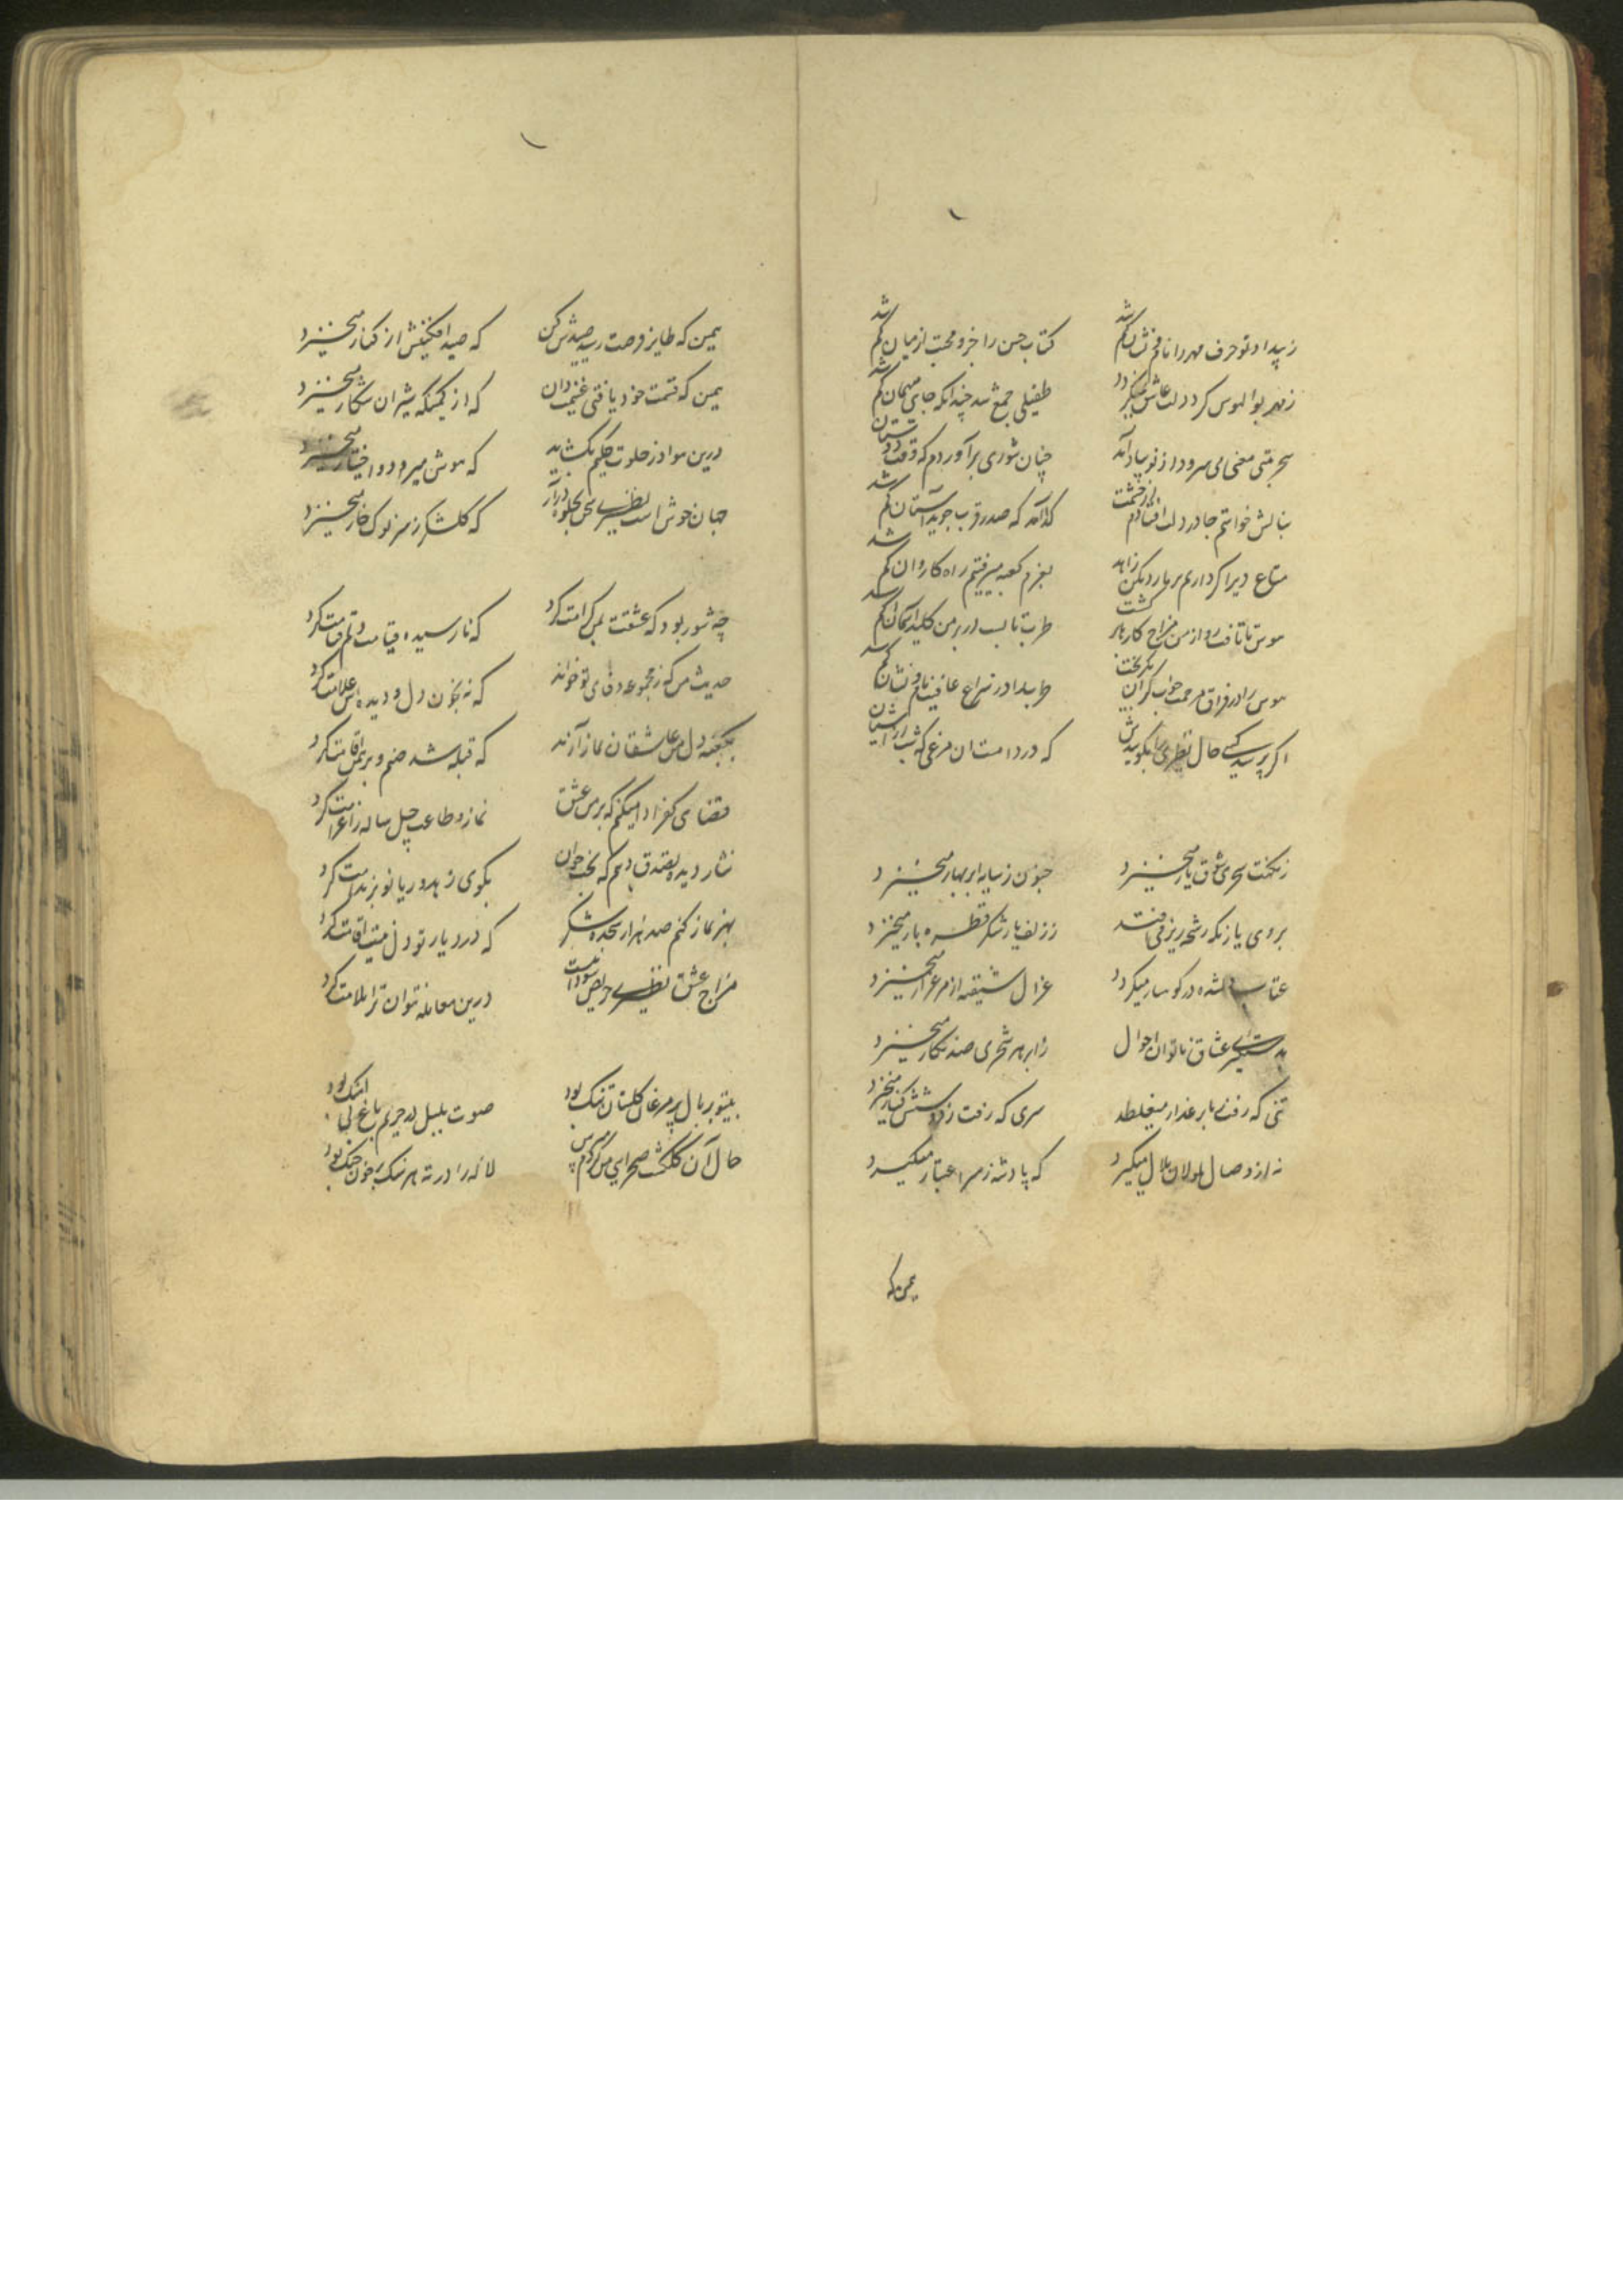 ز بیداد تو حرف مهر را نام و نشان گم شد کتاب حسن را جزو محبت از میان گم شد
ز مهر بوالهوس کرد دلت عاشق نمیگردد طفیلی جمع شد چندانکه جای میهمان گم شد
سحر بتی مغنی می سرود از نو بیاد آمد چنان شوری برآوردم که
ببالش خواستم جا در دلت افتادم از چشمت گدا آمد که صدر قرب جوید آستان گم شد
متاع دیر اگر داریم بر ما رد مکن زاهد بعزم کعبه میرفتیم راه کاروان گم شد
هوس تا تافت رو از من مزاج کارها گشت طرب تا لب
هوس را در فراق مرحمت خواب گران طرب را در سراغ عافیت نام و نشان گم شد
اگر پرسد کسی حال نظیری را بگوییدش که درد استان مرغی که شب از آشیان گم شد
ز نکهت سحری شوق یار میخیزد جنون ز سایه ابر بهار میخیزد
بروی یار نگه رشحه ریز می افتد ز زلف یار شکر قطره بار میخیزد
عتاب در کوسار میگردد غزال شیفته از مرغزار میخیزد
عشاق ناتوان احوال ز ابر هر شجری صد نگار میخیزد
تنی که رفت بر عذار میغلطد سری که رفت ز دوشش کنار میخیزد
نه از وصال ملولان ملال میگیرد که پادشه ز سر اعتبار میگیرد
یمن که
یمن که طایر فرصت رسید صیدش کن که صید افکنیش از کنار میخیزد
یمن که قسمت خود یافتی غنیمت دان که از کمینگه شیران شکار میخیزد
درین هوا در خلوت حکیم نگشاید که هوش میرود و اختیار میخیزد
جهان خوش است نظیری بجلوه درآر که گل شکر ز سر نوک خار میخیزد
چه شور بود که عشقت بمن کرامت کرد که نارسیده قیامت دلم قیامت کرد
حدیث من که ز مجموعه وفای تو خواند که نه بخون دل و دیده اش علامت کرد
بکعبه دل من عاشقان نماز آرند که قبله شد صنم و برهمن اقامت کرد
قضای کفر ادا میکنم که بر من عشق نماز و طاعت چل ساله را غرامت کرد
نثار دیده بصدق دهم که بخت جوان بکوی زهد و ریا نوبر ندامت کرد
بهر نماز کنم صد هزار سجده شکر که در دیار تو دل نیت اقامت کرد
مزاج عشق نظیری حریص سوداست درین معامله نتوان ترا ملامت کرد
بیتو بر بال و پر مرغان گلستان تنگ بود صوت بلبل در حریم باغ بی آهنگ بود
حال آن گلگشت صحرایی لاله را در ته هر سنگ پر خون جنگ بود